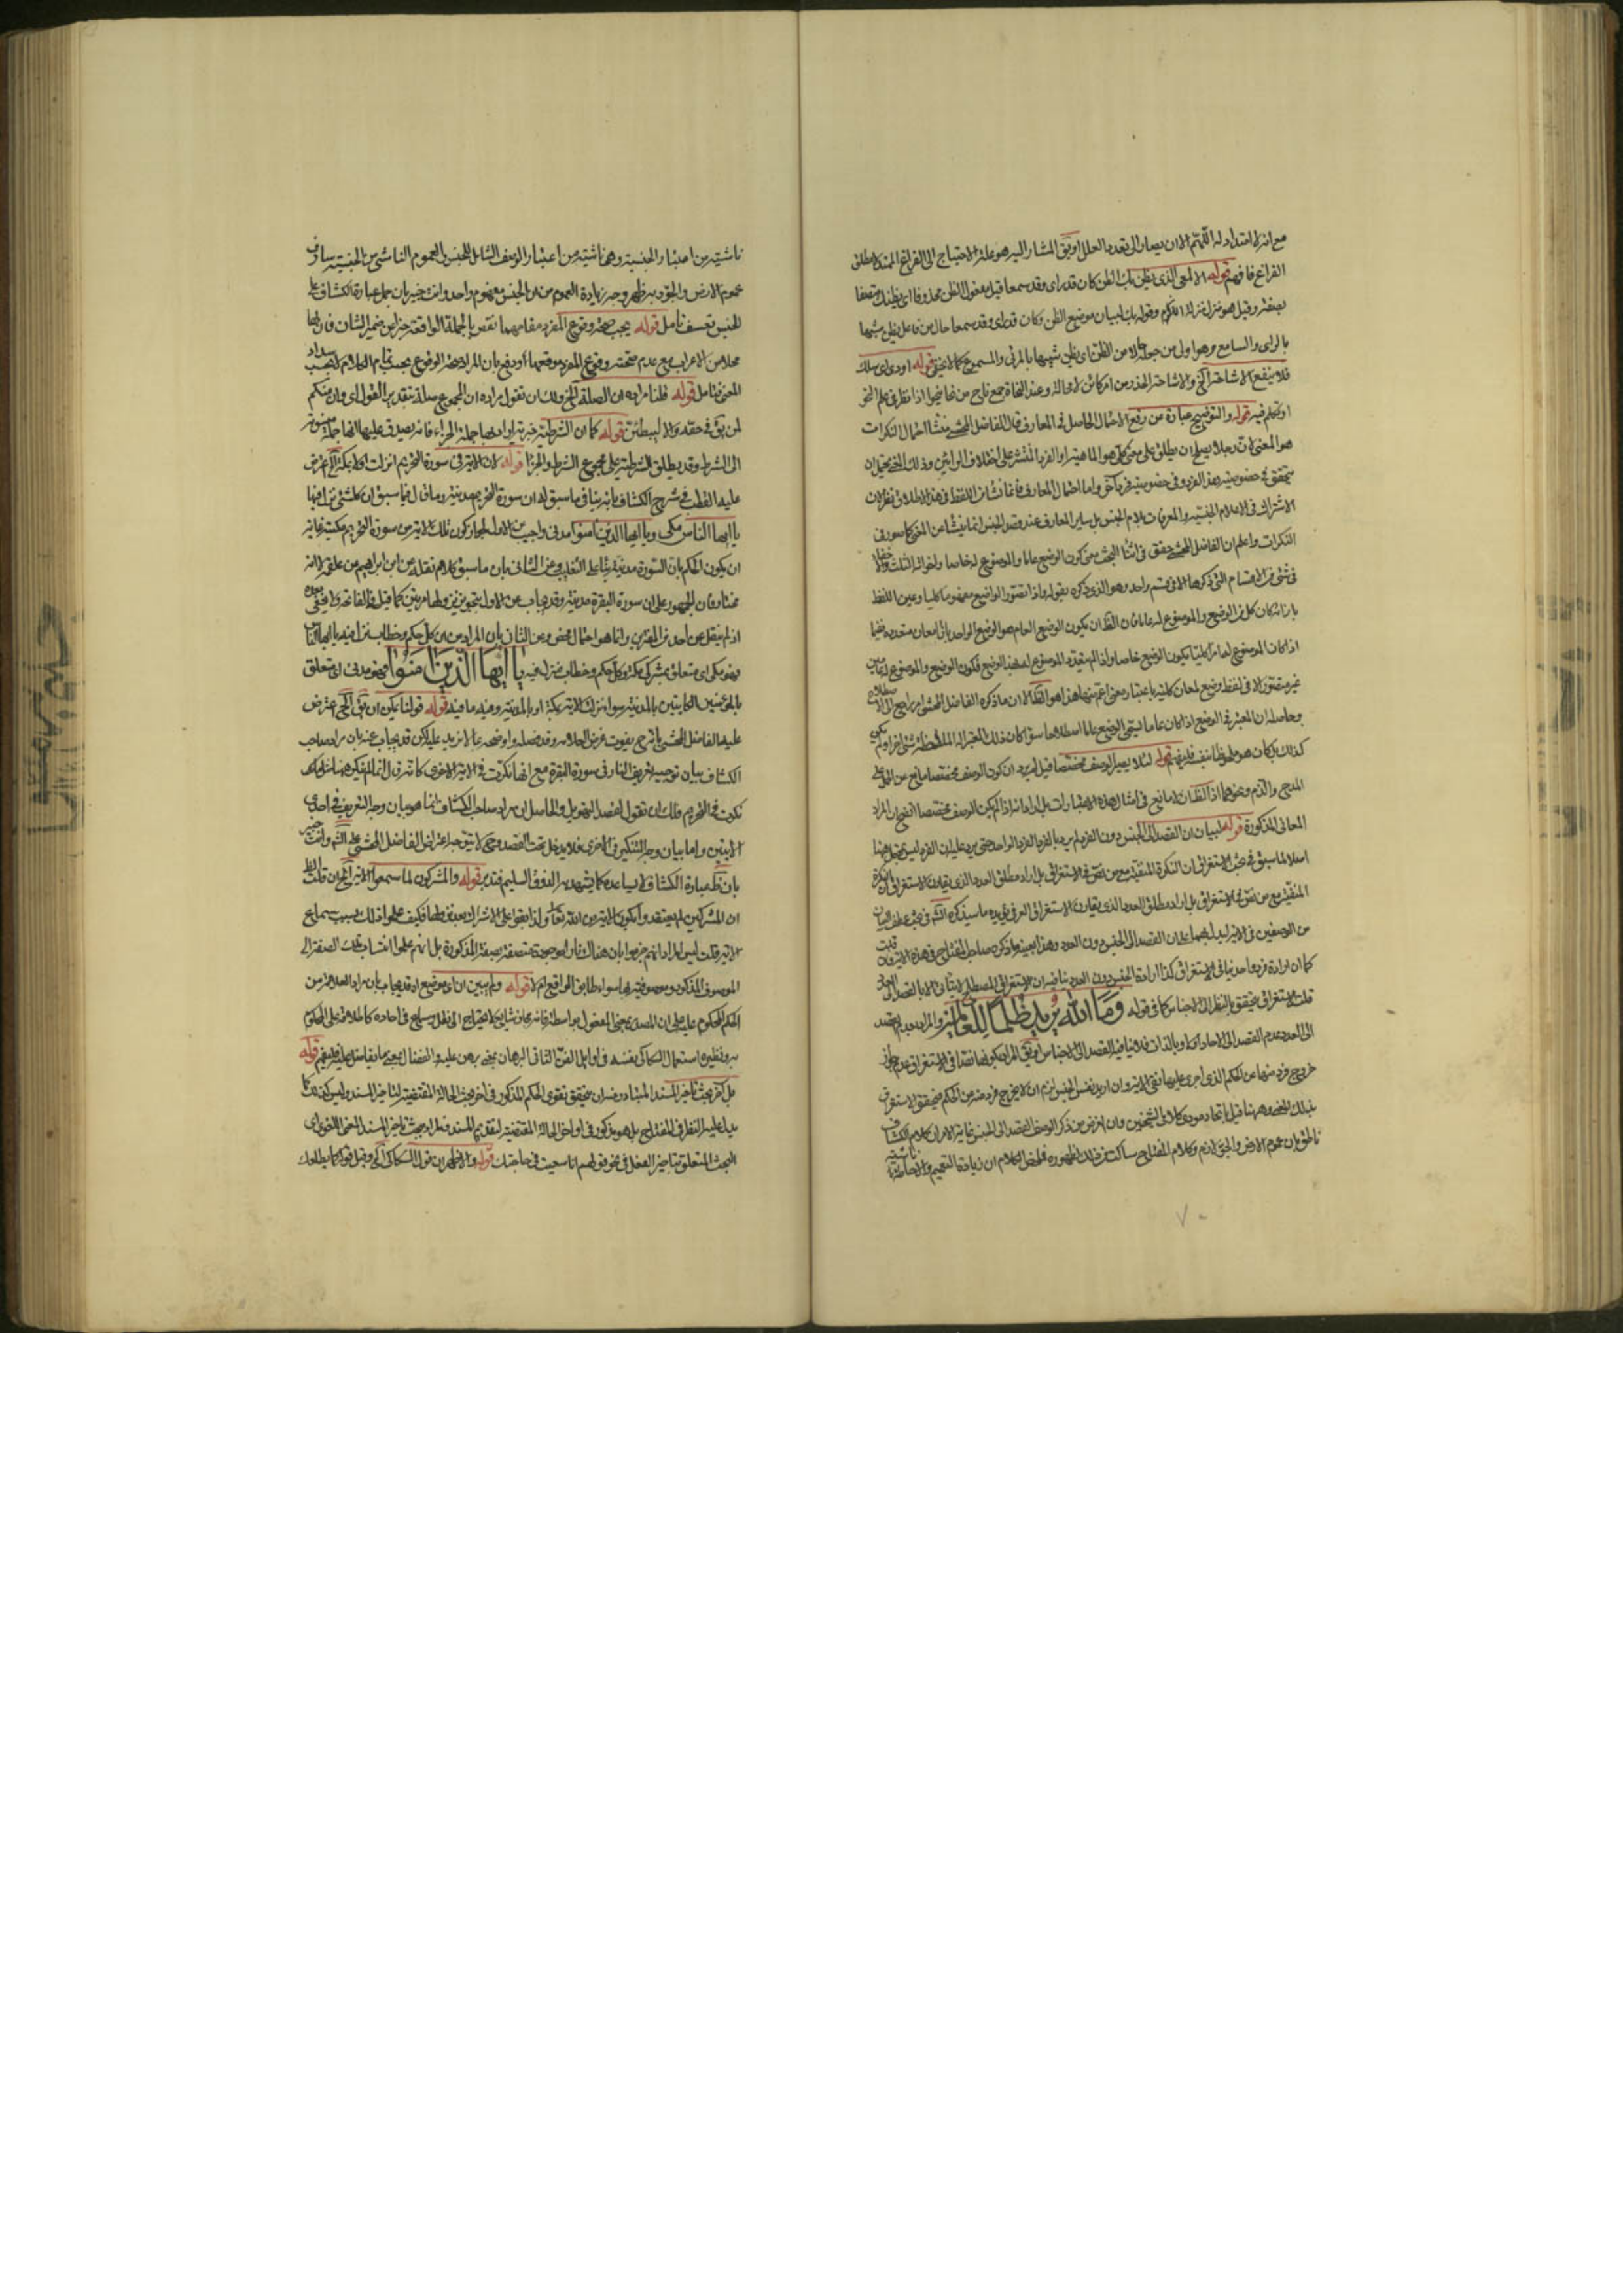 مع انه لا امتداد له اللهم الا ان يصار الى تعدد العلل او يق المشار اليه هو علة الاحتياج الى الفراغ الممتد لا مطلق
الفراغ فافهم قوله الالمعى الذى يظن بك الظن كان قد راى وقد سمعا قيل مفعول الظن محذوف اى يظنك متصفا
بصفة وقيل هو منزل منزلة اللازم وقوله بك لبيان موضع الظن وكان قد راى وقد سمعا حال من فاعل يظن مشبها
بالراى والسامع وهو اولى من جعله حالا من الظن اى يظن شبيها بالمرئى والمسموع كما لا يخفى قوله اودى اى هلك
فلا ينفع الاشاحة الخ والاشاحة الحذر من امر كائن لا محالة وعند النحاة جمع ناح من نحا ينحو اذا نظر فى علم النحو
او تكلم فيه قوله والتوضيح عبارة من رفع الاحتمال الحاصل فى المعارف قال الفاضل المحشى منشأ احتمال النكرات
هو المعنى لان رجلا يصلح ان يطلق على معنى كلى هو الماهية او الفرد المنتشر على اختلاف الرايين وذلك المعنى يحتمل ان
يتحقق فى خصوصية هذا الفرد وفى خصوصية فرد آخر واما احتمال المعارف فانما نشأ من اللفظ
الاشتراك فى الاعلام الجنسية والمعرفات بلام الجنس بل سائر المعارف عند قصد الجنس انما ينشأ عن المعنى كما هو فى
النكرات واعلم ان الفاضل المحشى حقق فى اثناء البحث معنى كون الوضع عاما والموضوع له خاصا
فى شئ من الاقسام التى ذكرها الا فى قسم واحد وهو الذى ذكره بقوله واذا تصور الواضع مفهوما كليا وعين اللفظ
بازائه كان كل من الوضع والموضوع له عاما فان الظ ان يكون الوضع العام هو الوضع الواحد
اذا كان الموضوع له امرا كليا يكون الوضع خاصا واذا لم يتعدد الموضوع له بهذا الوضع فكون الوضع والموضوع له عامين
غير متصور الا فى لفظ وضع لمعان كلية باعتبار معنى اعم منها هذا هو الظ الا ان ما ذكره الفاضل المحشى امر راجع الى الاصطلاح
وحاصله ان المعتبر فى الوضع اذا كان عاما يسمى الوضع عاما اصطلاحا سواء كان ذلك المعتبر آلة الملاحظة شئ آخر او لم يكن
كذلك بل كان هو ملحوظا بنفسه فليفهم قوله لئلا يصير الوصف مختصا قيل لم يرد ان كون الوصف مختصا مانع عن الحمل على
المدح والذم ونحوهما اذ الظ ان لا مانع فى امثال هذه الاعتبارات بل اراد انه اذا لم يكن الوصف مختصا اتضح ان المراد
المعانى المذكورة قوله لبيان ان القصد الى الجنس دون الفرد لم يرد بالفرد الفرد الواحد حتى يرد عليه ان الفرد ليس بمحتمل ههنا
اصلا لما سبق فى بحث الاستغراق ان النكرة المنفية مع من نص فى الاستغراق بل اراد مطلق العدد الذى يقارن الاستغراق
المنفية مع من نص فى الاستغراق بل اراد مطلق العدد الذى يقارن الاستغراق العرفى يؤيده ما سيذكره الش فى بحث عطف البيان
من الوصفين فى الآية ليدل بهما على ان القصد الى الجنس دون العدد وهذا بعينه ما ذكره صاحب المفتاح فى هذه الآية فان قلت
كما ان ارادة فرد واحد ينافى الاستغراق كذا ارادة الجنس دون العدد ينافيه لان الاستغراق المصطلح لا يتأتى الا بالقصد الى العدد
قلت الاستغراق يتحقق بالنظر الى الاجناس كما فى قوله وما الله يريد ظلما للعالمين والمراد بعدم القصد
الى العدد عدم القصد الى الآحاد اولا وبالذات فلا ينافيه القصد الى الاجناس او يق المراد بكونها نصا فى الاستغراق عدم جواز
خروج فرد منها عن الحكم الذى اجرى عليها نفى الآية وان اريد نفس الجنس لزم ان لا يخرج فرد منه من الحكم فيتحقق الاستغراق
بذلك المعنى وههنا قيل باتحاد مودى كلامى الشيخين وان الغرض من ذكر الوصف القصد الى الجنس غاية الامر ان كلام الكشاف
ناطق بان عموم الارض والجو لازم وكلام المفتاح ساكت عن ذلك لظهوره فملخص الكلام ان زيادة التعميم والاحاطة ناشية
٧٠
ناشية من اعتبار الجنسية وهنا ناشية من اعتبار الوصف الشامل للجنس والعموم الناشئ من الجنسية
عموم الارض والجو فيظهر وجه زيادة العموم من بين الجنس مفهوم واحد وانت خبير بان حمل عبارة الكشاف على
الجنس تعسف تأمل قوله يجب صحة وقوع المفرد مقامهما نقض بالجملة الواقعة خبرا عن ضمير الشان فان لها
محلا من الاعراب مع عدم صحة وقوع المفرد موقعها ودفع بان المراد صحة الوقوع بحسب تمام الكلام لا بحسب سداد
المعنى تأمل قوله قلنا مراده ان الصلة الخ ولك ان تقول مراده ان المجموع صلة بتقدير القول اى وان منكم
لمن يق فى حقه والله ليبطئن قوله كما ان الشرطية خبرية اراد بها جملة الجزاء فانه يصدق عليها انها جملة منسوبة
الى الشرط وقد يطلق الشرطية على مجموع الشرط والجزاء قوله لان الآية فى سورة التحريم انزلت اولا بمكة الخ اعترض
عليه القطب فى شرح الكشاف بانه ينافى ما سبق له ان سورة التحريم مدنية وما قال فيما سبق ان كل شئ نزل فيها
يا ايها الناس مكى ويا ايها الذين آمنوا مدنى واجيب عن الاول لجواز كون تلك الآية من سورة التحريم مكية غايته
ان يكون الحكم بان السورة مدنية بناء على التغليب وعن الثانى بان ما سبق كلام نقله عن ابن ابراهيم عن علقمة لا انه
مختاره فان الجمهور على ان سورة البقرة مدنية وقد يجاب عن الاول بتجويز نزولها مرتين كما قيل فى الفاتحة ولا يخفى بعده
اذ لم ينقل عن احد من المفسرين وانما هو احتمال محض وعن الثانى بان المراد من بين كل حكم وخطاب نزل فيه يا ايها الناس
فهو مكى اى متعلق بمشركى مكة وكل حكم وخطاب نزل فيه يا ايها الذين آمنوا فهو مدنى اى متعلق
بالمؤمنين الكاينين بالمدينة سواء نزلت الآية بمكة او بالمدينة وفيه ما فيه قوله قولنا يمكن ان يق الخ اعترض
عليه الفاضل المحشى بانه ح يفوت غرض العلامة وقد فصله واوضحه بما لا مزيد عليه لكن قد يجاب عنه بان مراد صاحب
الكشاف بيان توجيه تعريف النار فى سورة البقرة مع انها نكرت فى الآية الاخرى
نكرت فى التحريم فلك ان تقول لقصد التهويل والحاصل ان مراد صاحب الكشاف انما هو بيان وجه التعريف فى احدى
الآيتين واما بيان وجه التنكير فى الاخرى فلا يدخل تحت القصد وحينئذ لا يتوجه اعتراض الفاضل المحشى على الش وانت خبير
بان ظ عبارة الكشاف لا يساعده كما يشهد به الذوق السليم فتدبر قوله والمشركون لما سمعوا الآية الخ فان قلت الظ
ان المشركين لم يعتقدوا بكون الآية من الله تعالى ولذا بقوا على الاشراك بعد نزولها فكيف علموا ذلك بسبب سماع
الآية قلت ليس المراد انهم جزموا بان هناك نارا موجودة متصفة بصفة المذكورة بل انهم علموا انتساب تلك الصفة الى
الموصوف المذكور وموصوفية بها سواء طابق الواقع ام لا قوله ولم يبين ان اى موضع اه قد يجاب بان مراد العلامة من
الحكم المحكوم عليه على ان المصدر بمعنى المفعول بواسطة فانه مجاز شايع لا يحتاج الى نقل وسماع فى آحاده كاطلاقه على المحكوم
به ونظيره استعمال السكاكى نفسه فى اوايل الفن الثانى البرهان بمعنى برهن عليه والفضال بمعنى ما يفاضل عليه فليفهم قوله
بل آخر بحث تأخير المسند المتبادر منه ان تحقيق تقوى الحكم المذكور فى آخر بحث الحالة المقتضية لتأخير المسند وليس كذلك كما
يدل عليه النظر فى المفتاح بل هو مذكور فى اواخر الحالة المقتضية لتقديم المسند فمراده ببحث تأخير المسند المعنى اللغوى اى
البحث المتعلق بتأخير الفعل فى نحو قولهم انا سعيت فى حاجتك قوله والاظهر ان قول السكاكى الخ وقيل قوله كما يطلعك